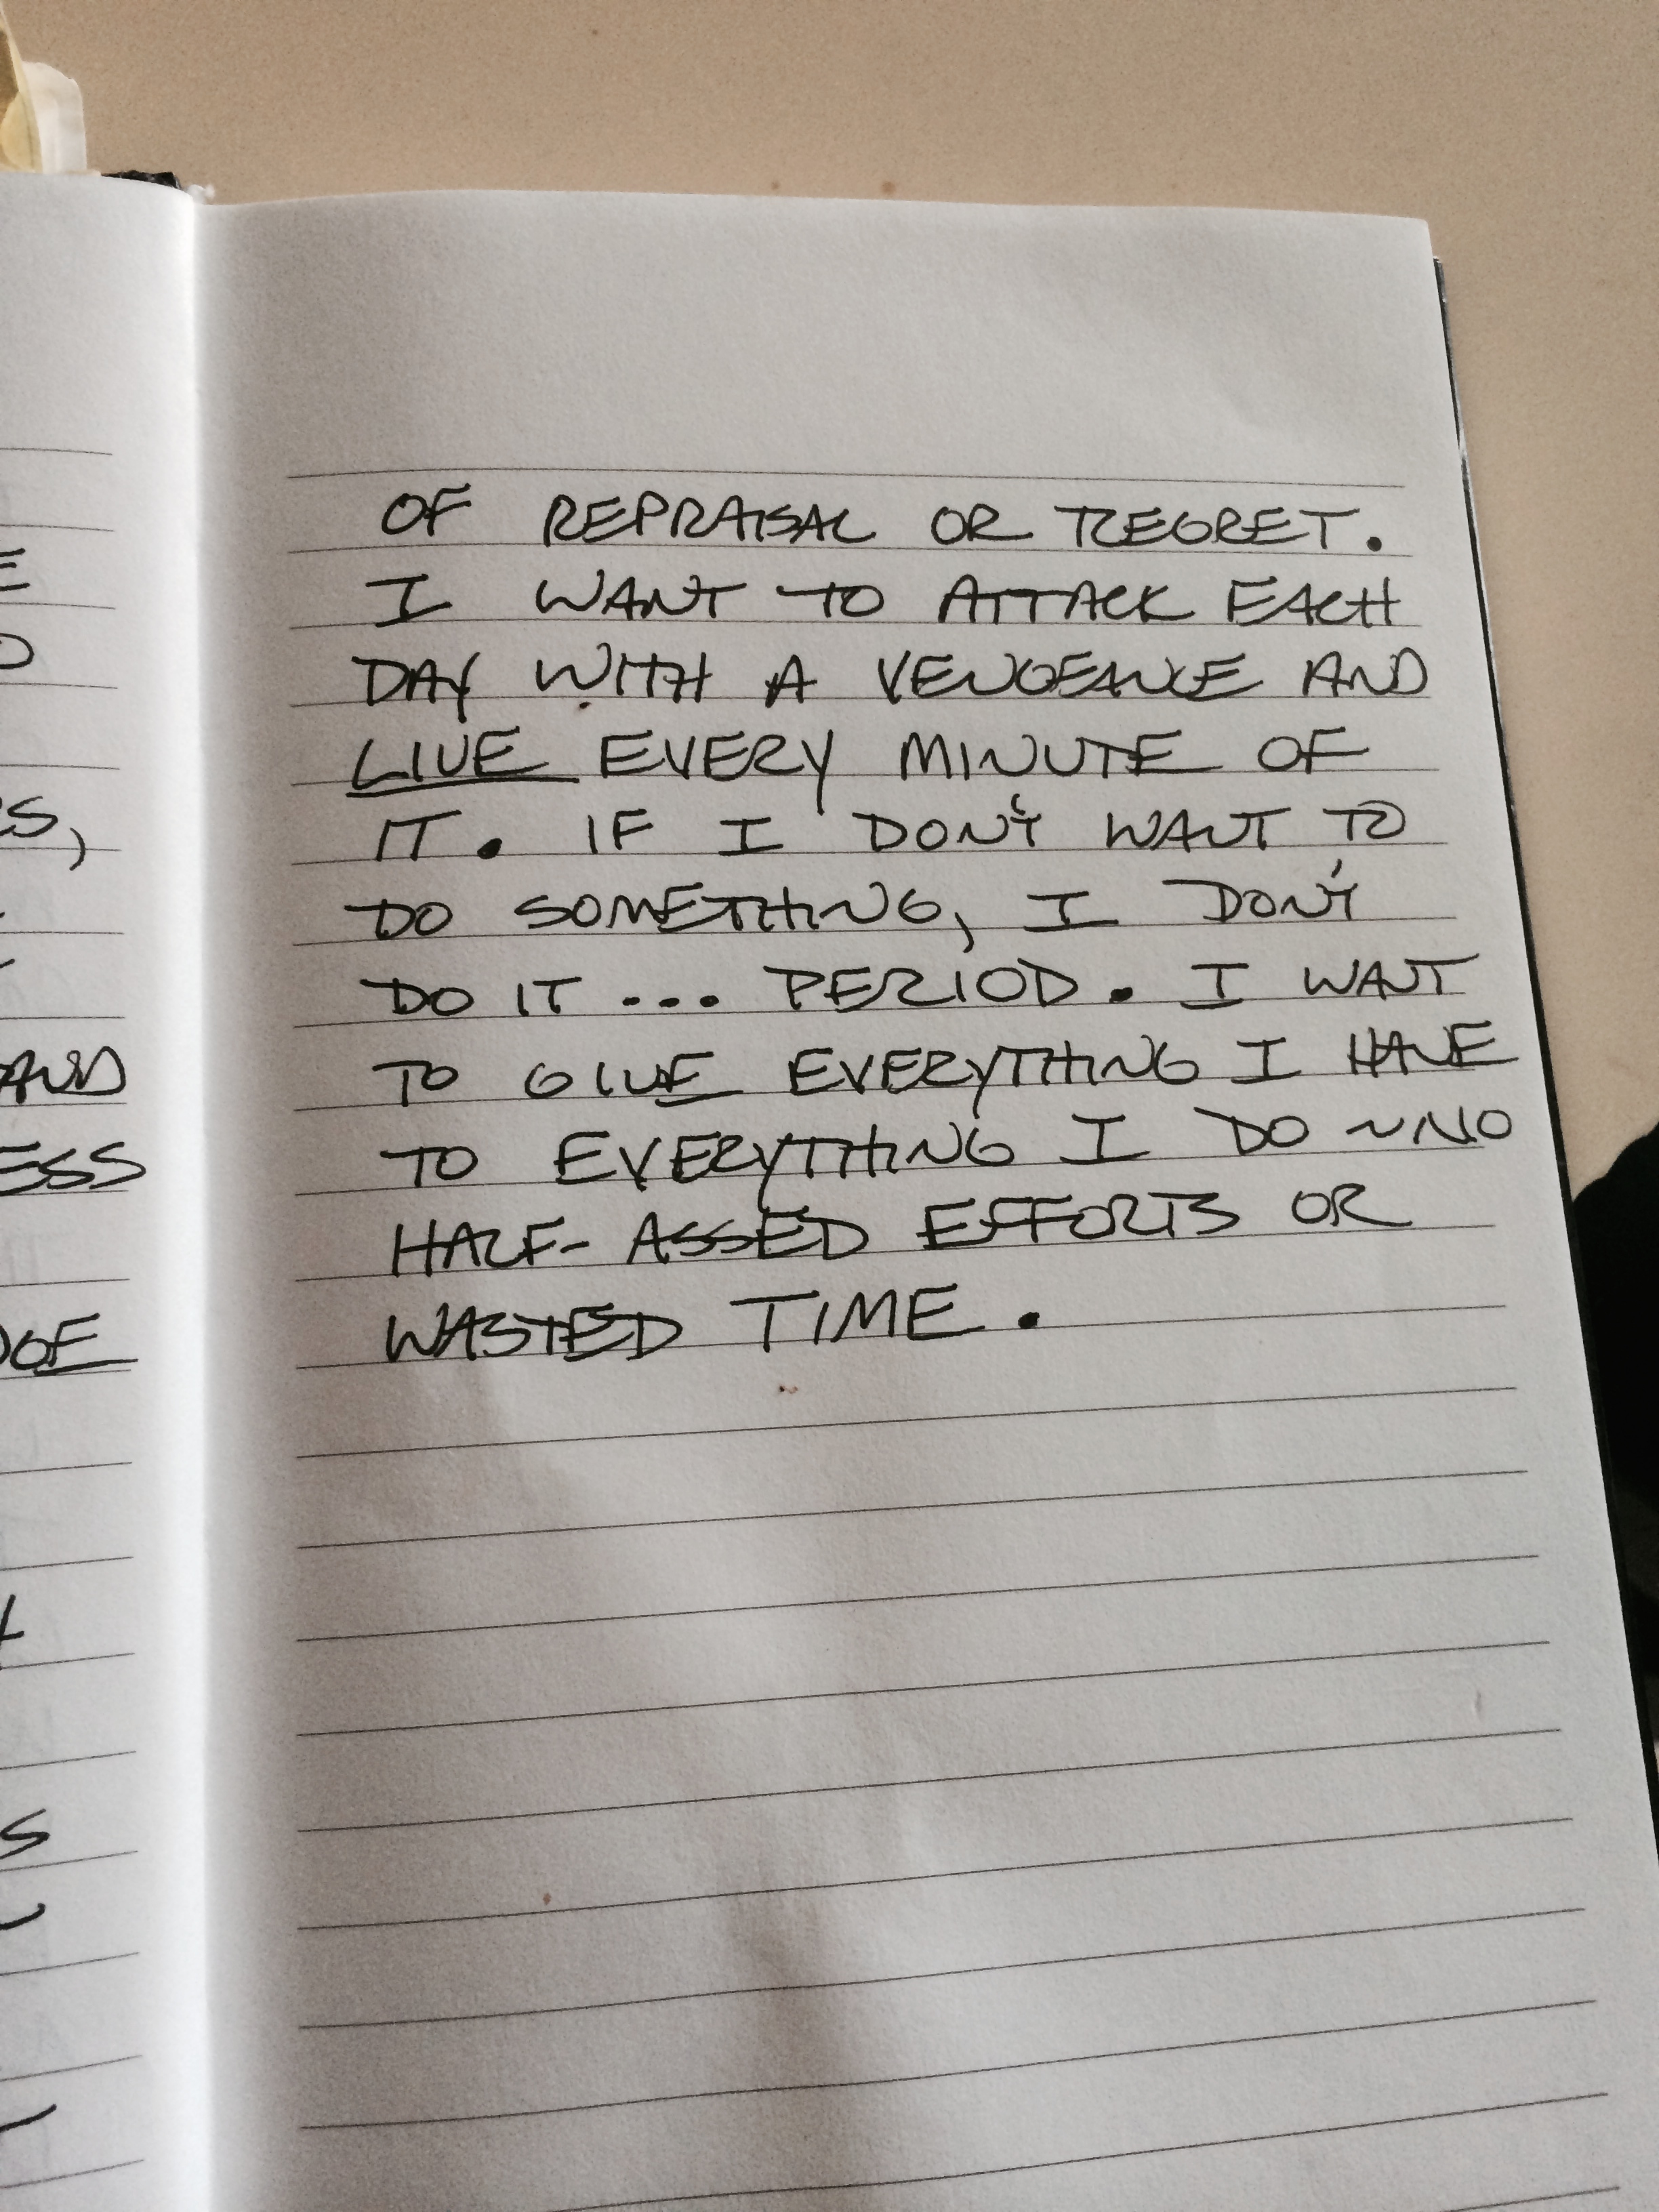 E
D
S,
AND
ESS
DGE
S
OF REPRAISAL OR REGRET.
I WANT TO ATTACK EACH
DAY WITH A VENGEANCE AND
LIVE EVERY MINUTE OF
IT. IF I DON'T WANT TO
DO SOMETHING, I DON'T
DO IT... PERIOD. I WANT
TO GIVE EVERYTHING I HAVE
TO EVERYTHING I DO ~ NO
HALF-ASSED EFFORTS OR
WASTED TIME.